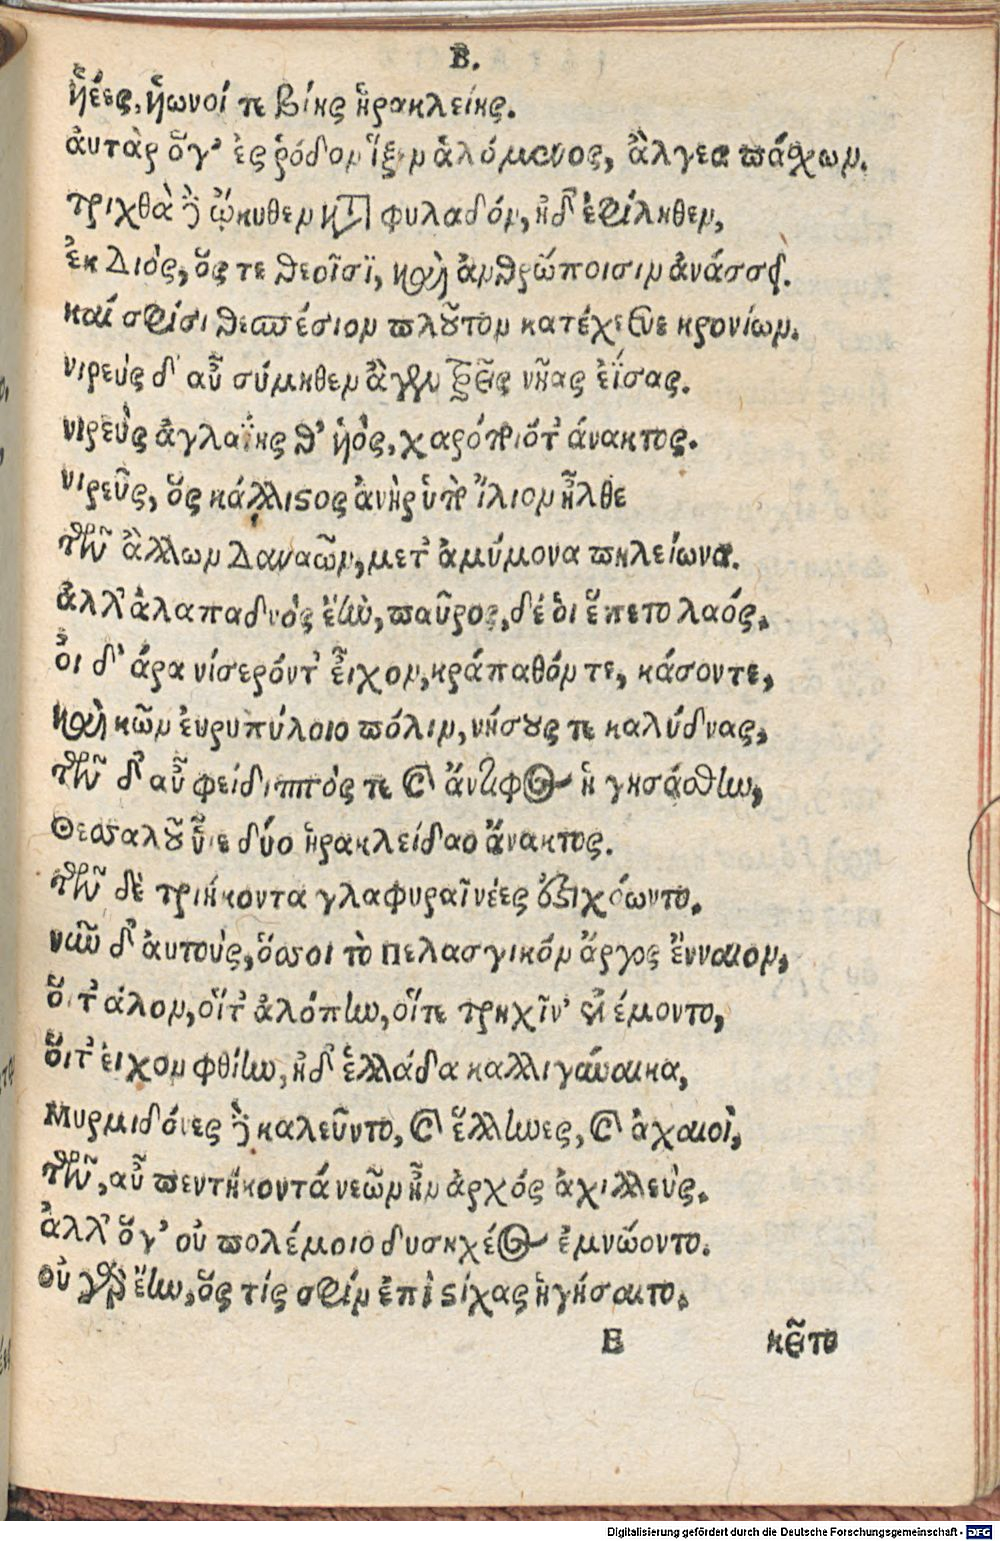 Β.
ἧέες, ἧωνοί τε βίης ἡρακλείης.
ἀυτὰρ ὅγ' ἐς ῥόδον ἷξεν ἀλόμενος, ἂλγεα πάσχων.
τριχθὰ ἢ ᾤκυθεν κατα φυλαδόν, ἠδ' ἐφίληθεν,
ἐκ Διός, ὅς τε θεοῖσϊ, καὶ ἀνθρώποισιν ἀνάσσει.
καί σφίσι θεσπέσιον πλοῦτον κατέχευε κρονίων.
νιρεὺς δ' αὖ σύμηθεν ἂγεν τρεῖς νῆας ἐΐσας.
νιρεὺς ἀγλαΐης θ' ἡὸς, χαρόποιό τ' άνακτος.
νιρεῦς, ὅς κάλλιστος ἀνὴρ ὑπὸ ἴλιον ἦλθε
τῶν ἂλλων Δαναῶν, μετ' ἀμύμονα πηλείωνα.
ἀλλ' ἀλαπαδνὸς ἔην, παῦρος, δέ ὁι ἕπετο λαός.
ὁι δ' άρα νίσερόν τ' εἶχον, κράπαθόν τε, κάσον τε,
καὶ κῶν ἐυρυπύλοιο πόλιν, νήσους τε καλύδνας,
τῶν δ' αὖ φείδιππός τε καὶ ἄντιφος ἡγησάσθην,
Θεσσαλοῦ ὗιε δύο ἡρακλείδαο ἄνακτος.
τῶν δὲ τριήκοντα γλαφυραῖ νέες ἐστιχόωντο.
νῶν δ' ἀυτοὺς, ὅσσοι τὸ Πελασγικόν ἄργος ἔνναιον,
ὅι τ' άλον, οἵ τ' ἀλόπην, οἵ τε τρηχῖν' ἐνέμοντο,
ὅι τ' ἐιχον φθίην, ἠδ' ἑλλάδα καλλιγύναικα,
Μυρμιδόνες ἢ καλεῦντο, καὶ ἕλληνες, καὶ ἀχαιοὶ,
τῶν, αὖ πεντήκοντά νεῶν ἦν ἀρχός ἀχιλλεὺς.
ἀλλ' ὅγ' οὐ πολέμοιο δυσηχέος ἐμνώοντο.
οὐ γὰρ ἔην, ὅς τίς σφίν ἐπὶ στίχας ἡγήσαιτο.
Ε κεῖτο
Digitalisierung gefördert durch die Deutsche Forschungsgemeinschaft - DFG